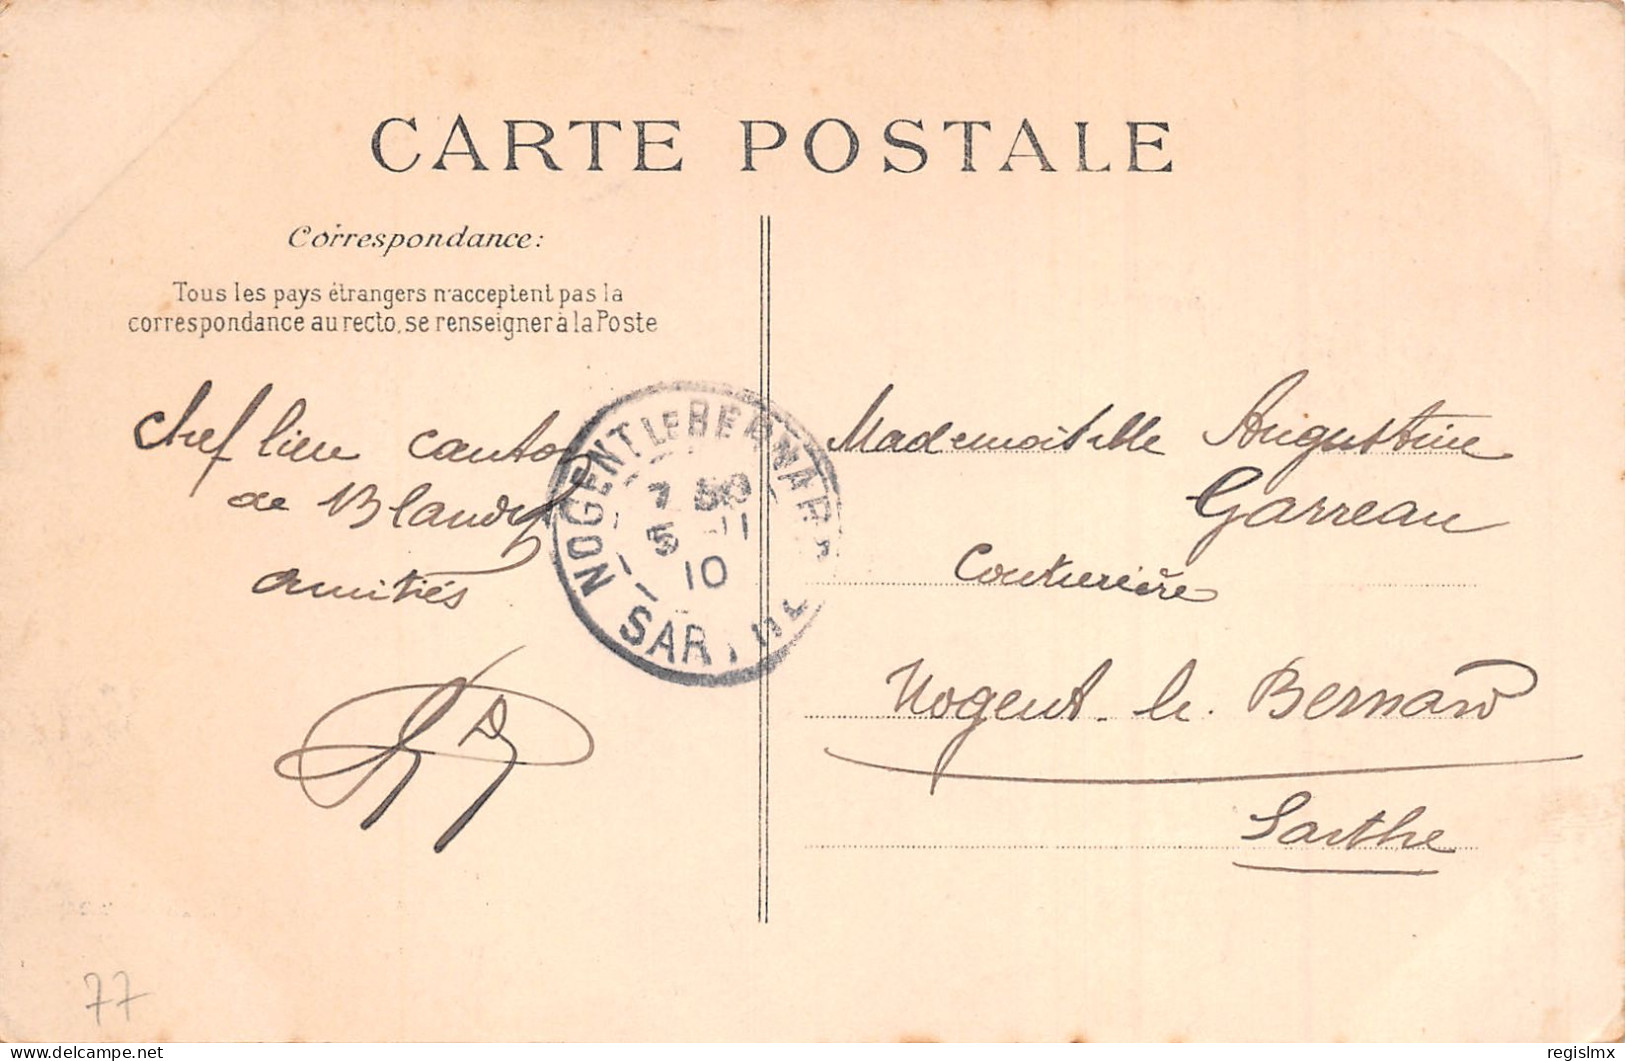 CARTE POSTALE
Correspondance:
Tous les pays étrangers n'acceptent pas la
correspondance au recto, se renseigner à la Poste
chef lieu canton
de Blandy
amitiés
NOGENT LE BERNARD
7 30
5 -11
10
SARTHE
Mademoiselle Augustine
Garreau
Couturière
Nogent-le-Bernard
Sarthe
77
www.delcampe.net
regislmx